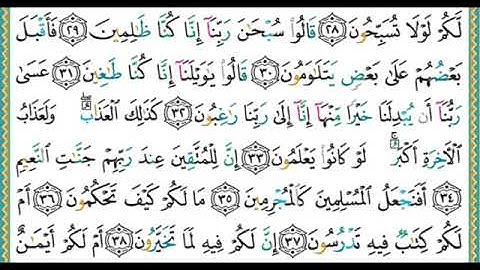 لَّكُمْ لَوْلَا تُسَبِّحُونَ ٢٨ قَالُوا۟ سُبْحَٰنَ رَبِّنَآ إِنَّا كُنَّا ظَٰلِمِينَ ٢٩ فَأَقْبَلَ
بَعْضُهُمْ عَلَىٰ بَعْضٍ يَتَلَٰوَمُونَ ٣٠ قَالُوا۟ يَٰوَيْلَنَآ إِنَّا كُنَّا طَٰغِينَ ٣١ عَسَىٰ
رَبُّنَآ أَن يُبْدِلَنَا خَيْرًا مِّنْهَآ إِنَّآ إِلَىٰ رَبِّنَا رَٰغِبُونَ ٣٢ كَذَٰلِكَ ٱلْعَذَابُ ۖ وَلَعَذَابُ
ٱلْءَاخِرَةِ أَكْبَرُ ۚ لَوْ كَانُوا۟ يَعْلَمُونَ ٣٣ إِنَّ لِلْمُتَّقِينَ عِندَ رَبِّهِمْ جَنَّٰتِ ٱلنَّعِيمِ
٣٤ أَفَنَجْعَلُ ٱلْمُسْلِمِينَ كَٱلْمُجْرِمِينَ ٣٥ مَا لَكُمْ كَيْفَ تَحْكُمُونَ ٣٦ أَمْ
لَكُمْ كِتَٰبٌ فِيهِ تَدْرُسُونَ ٣٧ إِنَّ لَكُمْ فِيهِ لَمَا تَخَيَّرُونَ ٣٨ أَمْ لَكُمْ أَيْمَٰنٌ